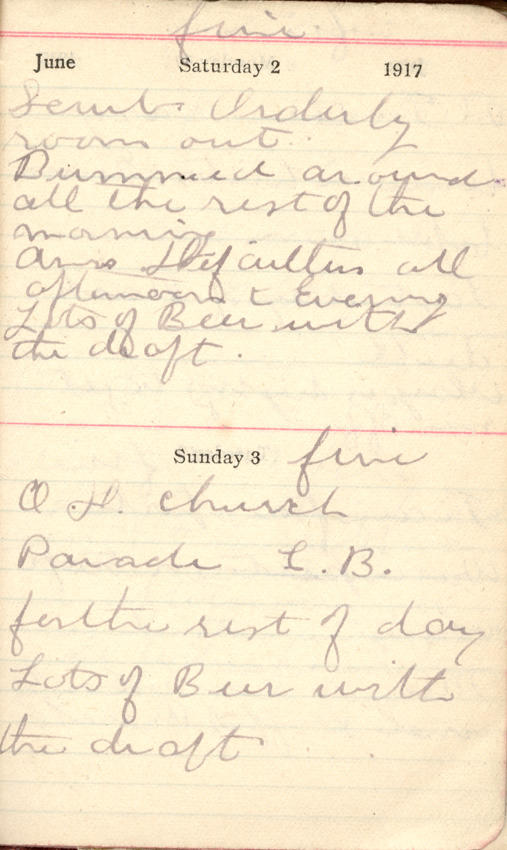 fine
June Saturday 2 1917
Scrub Orderly
room out.
Bummed around
all the rest of the
morning
all
afternoon & Evening
Lots of Beer with
the draft.
Sunday 3 fine
O.H. church
Parade C.B.
for the rest of day
Lots of Beer with
the draft